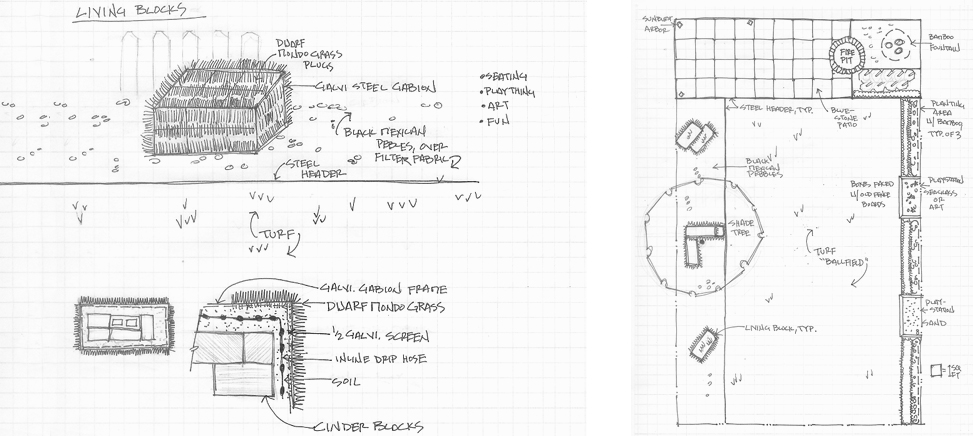 LIVING BLOCKS
DWARF
MONDO GRASS
PLUGS
GALVI STEEL GABION
• SEATING
• PLAYTHING
• ART
• FUN
BLACK MEXICAN
PEBBLES, OVER
FILTER FABRIC
STEEL
HEADER
TURF
GALVI. GABION FRAME
DWARF MONDO GRASS
1/2 GALVI. SCREEN
INLINE DRIP HOSE
SOIL
CINDER BLOCKS
SUNBURST
ARBOR
FIRE
PIT
BAMBOO
FOUNTAIN
STEEL HEADER, TYP.
BLUE-
STONE
PATIO
PLANTING
AREA
W/ BAMBOO
TYP. OF 3
BLACK
MEXICAN
PEBBLES
BOXES FACED
W/ OLD FENCE
BOARDS
PLAYSTATION
SEAGLASS
OR
ART
SHADE
TREE
TURF
"BALLFIELD"
PLAY-
STATION
SAND
LIVING BLOCK, TYP.
= 1 SQ.
FT